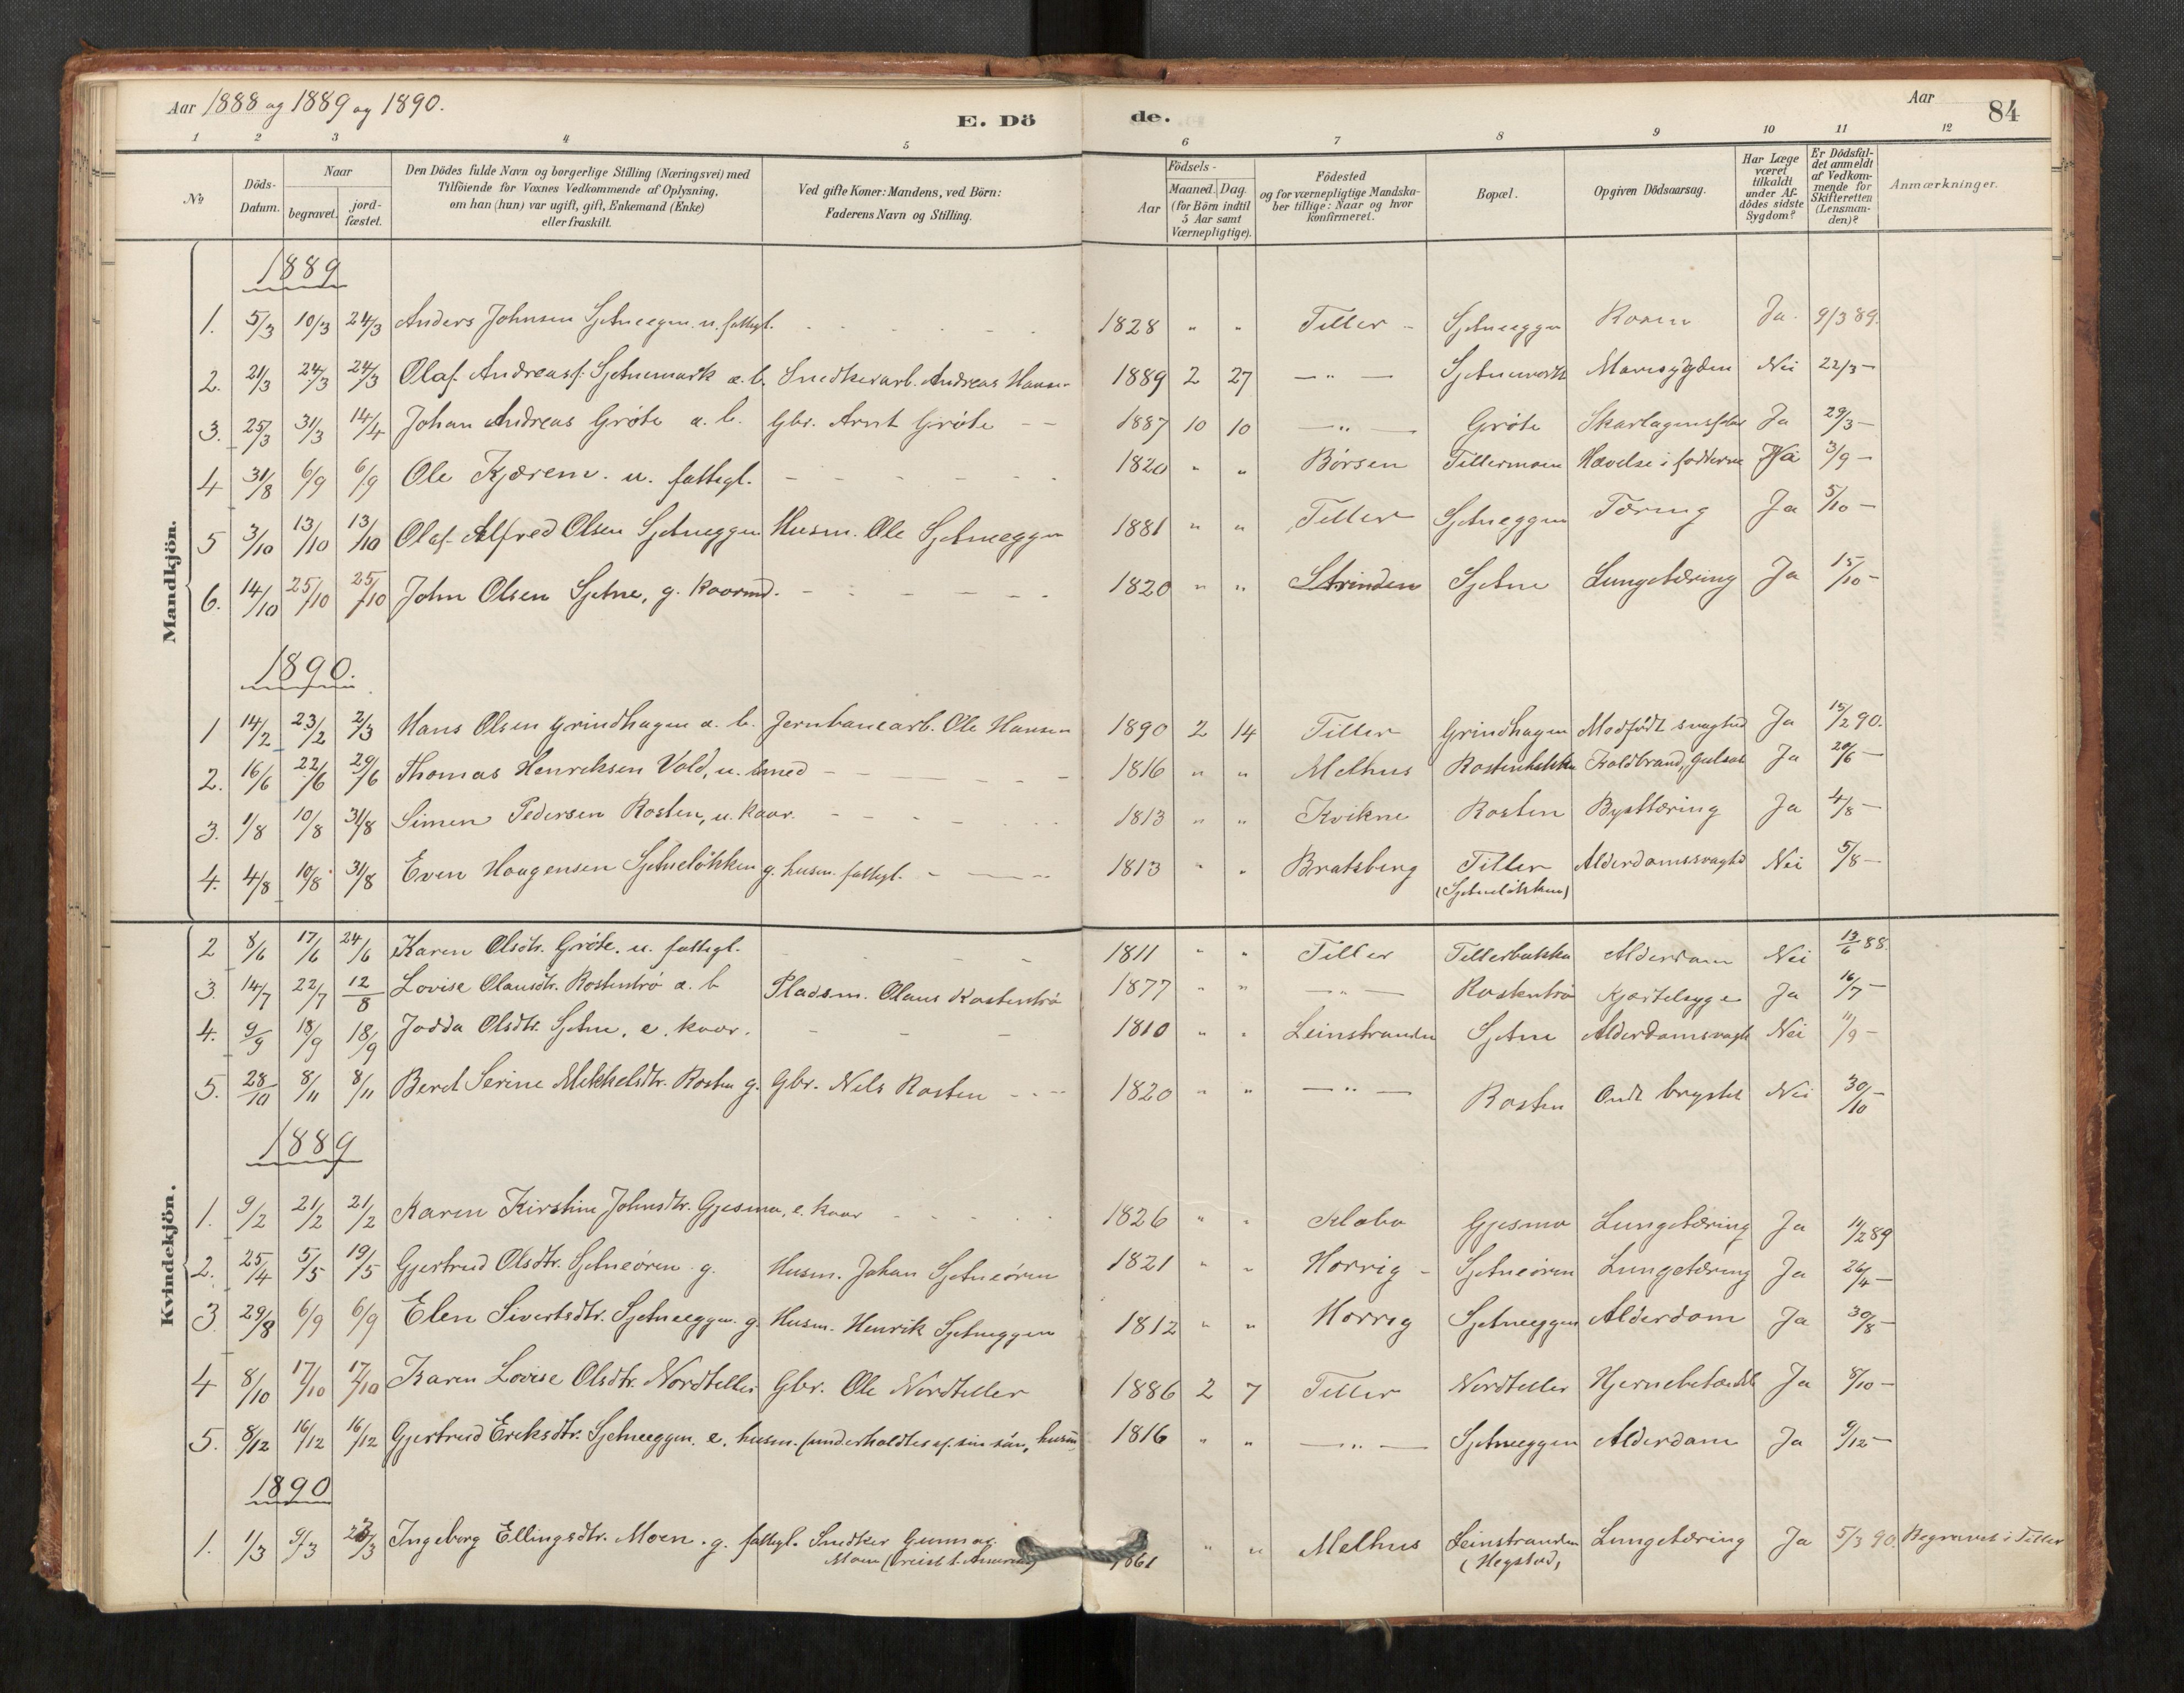 Aar 1888 og 1889 og 1890.
E. Dö de.
Aar
84
1 2 3 4 5 6 7 8 9 10 11 12
No
Döds-Datum.
Naar
begravet.
jord-fæstet.
Den Dödes fulde Navn og borgerlige Stilling (Næringsvei) med
Tilföiende for Voxnes Vedkommende af Oplysning,
om han (hun) var ugift, gift, Enkemand (Enke)
eller fraskilt.
Ved gifte Koner: Mandens, ved Börn:
Faderens Navn og Stilling.
Födsels-
Aar
Maaned. Dag.
(for Börn indtil
5 Aar samt
Værnepligtige).
Födested
og for værnepligtige Mandska-
ber tillige: Naar og hvor
konfirmeret.
Bopæl.
Opgiven Dödsaarsag.
Har Læge
været
tilkaldt
under Af-
dödes sidste
Sygdom?
Er Dödsfal-
det anmeldt
af Vedkom-
mende for
Skifteretten
(Lensman-
den)?
Anmærkninger.
Mandkjön.
1889
1. 5/3 10/3 24/3 Anders Johnsen Sjetneegen. u. fattigl. - - - 1828 " " Tiller - Sjetneeggen Ja. 9/3 89.
2. 21/3 24/3 24/3 Olaf Andreasf. Sjetnemark a. b. Snedkerarb. Andreas Hansen 1889 2 27 — " — Sjetnemark Mavesygdom Nei 22/3 —
3. 25/3 31/3 14/4 Johan Andreas Gröte a. b. Gbr. Arnt Gröte - - 1887 10 10 — " — Gröte Skarlagensfeber Ja 29/3 —
4 31/8 6/9 6/9 Ole Kjærem. u. fattigl. - - - 1820 " " Börsen Tillermoen Hævelse i födderne 3/9 —
5 3/10 13/10 13/10 Olaf Alfred Olsen Sjetneggen Husm. Ole Sjetneeggen 1881 " " Tiller Sjetneggen Tæring Ja 5/10 —
6. 14/10 25/10 25/10 John Olsen Sjetne, g. kaarmd. - - - 1820 " " Strinden Sjetne Lungetæring Ja 15/10 -
1890.
1 14/2 23/2 2/3 Hans Olsen Grindhagen a. b. Jernbanearb. Ole Hansen 1890 2 14 Tiller Grindhagen Medfödt svaghed Ja 15/2 90.
2. 16/6 22/6 29/6 Thomas Henriksen Vold, u. smed - - - 1816 " " Melhus Rostenbakken Koldbrand, Gulsot Ja 20/6 —
3. 1/8 10/8 31/8 Simen Pedersen Rosten, u. kaar. - - - 1813 " " Kvikne Rosten Brysttæring Ja 4/8 —
4. 4/8 10/8 31/8 Even Haagensen Sjetnelökken g. husm. fattigl. - - 1813 " " Bratsberg Tiller Alderdomssvaghd Nei 5/8 —
(Sjetnelökken)
Kvindekjön.
2 8/6 17/6 24/6 Karen Olsdtr. Gröte. u. fattigl. - - 1811 " " Tiller Tillerbakken Alderdom Nei 13/6 88.
3. 14/7 22/7 12/8 Lovise Olausdtr. Rostentrö a. b Pladsm. Olaus Rostentrö 1877 " " — " — Rostentrö Kjertelsyge Ja 16/7 —
4. 9/9 18/9 18/9 Jodda Olsdtr. Sjetne, e. kaar. - - - 1810 " " Leinstranden Sjetne Alderdomsvagh Nei 11/9 -
5. 28/10 8/11 8/11 Beret Serine Mekkelsdtr. Rosten g. Gbr. Nils Rosten - - 1820 " " — " — Rosten Ondt brystet Nei 30/10 —
1889
1. 9/2 21/2 21/2 Karen Kirstine Johnsdtr. Gjesmo, e. kaar - - - 1826 " " Klæbo Gjesmo Lungetæring Ja 11/2 89
2. 25/4 5/5 19/5 Gjertrud Olsdtr. Sjetneören g. Husm. Johan Sjetneören 1821 " " Horrig - Sjetneören Lungetæring Ja 26/4 —
3 29/8 6/9 6/9 Elen Sivertsdtr. Sjetneeggen. g. Husm. Henrik Sjetneggen 1812 " " Horrig Sjetneeggen Alderdom Ja 30/8 —
4 8/10 17/10 17/10 Karen Lovise Olsdtr. Nordtiller Gbr. Ole Nordtiller 1886 2 7 Tiller Nordtiller Hjernebetændelse Ja 8/10 —
5. 8/12 16/12 16/12 Gjertrud Eriksdtr. Sjetneeggen, e. husm. (underholdtes af sin sön, husm. 1816 " " — " — Sjetneeggen Alderdom Ja 9/12 —
1890
1. 1/3 9/3 23/3 Ingeborg Ellingsdtr. Moen. g. fattigl. Snedker Gunnar 1861 " " Melhus Leinstranden Lungetæring Ja 5/3 90. Begravet i Tiller
Moen (reist t. Amerika) (Hegstad)